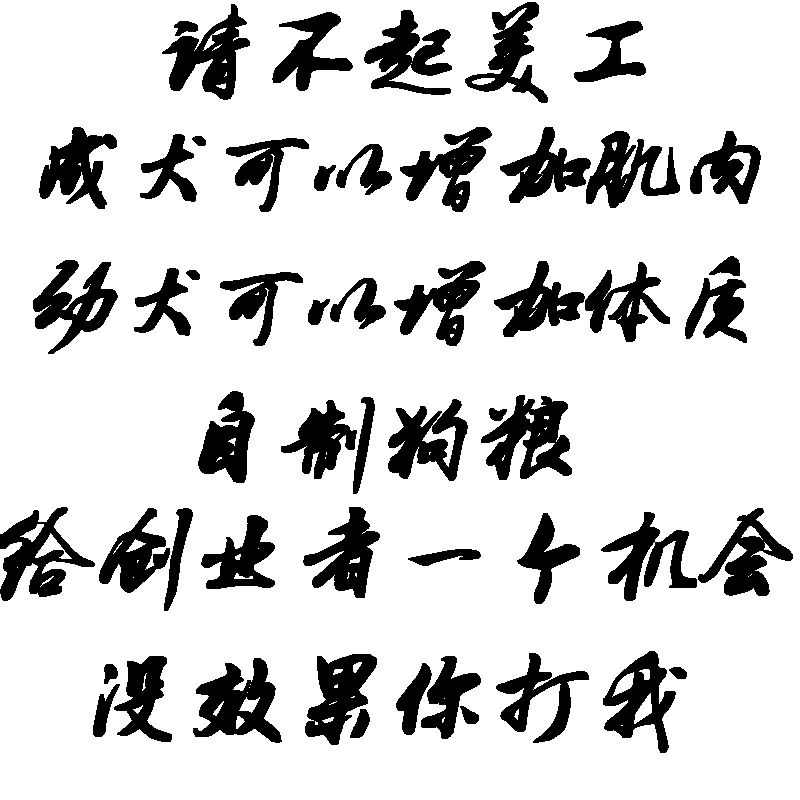 请不起美工
成犬可以增加肌肉
幼犬可以增加体质
自制狗粮
给创业者一个机会
没效果你打我